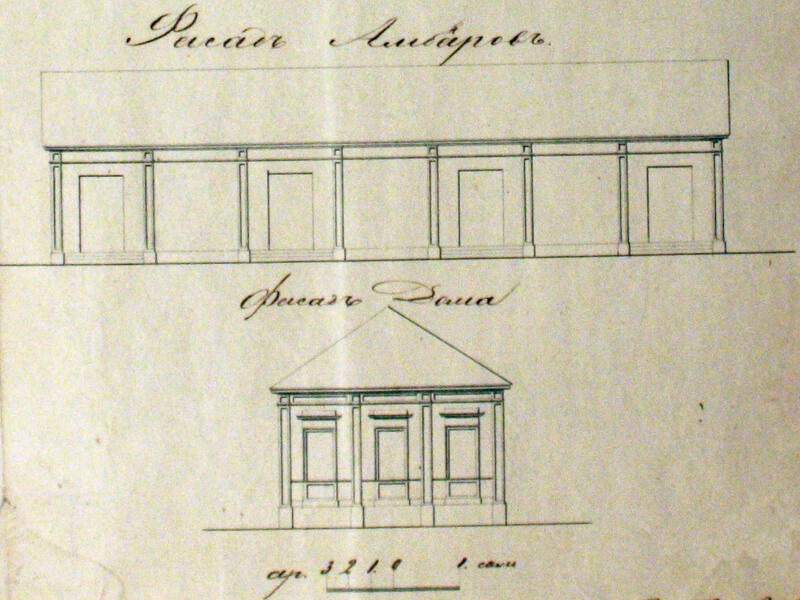 Фасадъ Амбаровъ.
Фасадъ Дома
ар. 3 2 1. 0 1. саж